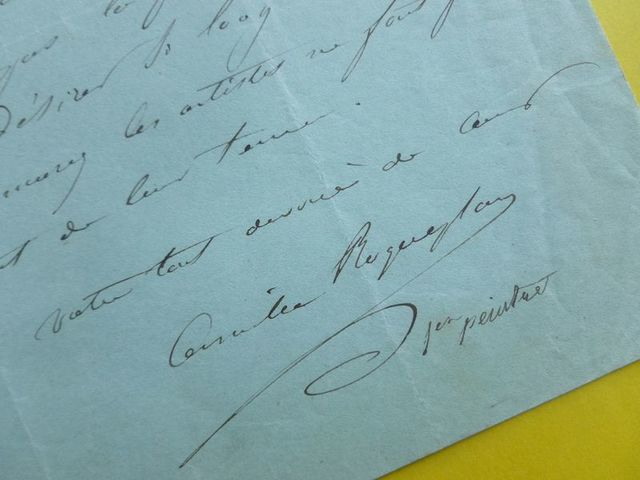 désirer si long
les artistes ne font p
t de leur terme.
votre tout dévoué de cœur
Camille Roqueplan
peintre